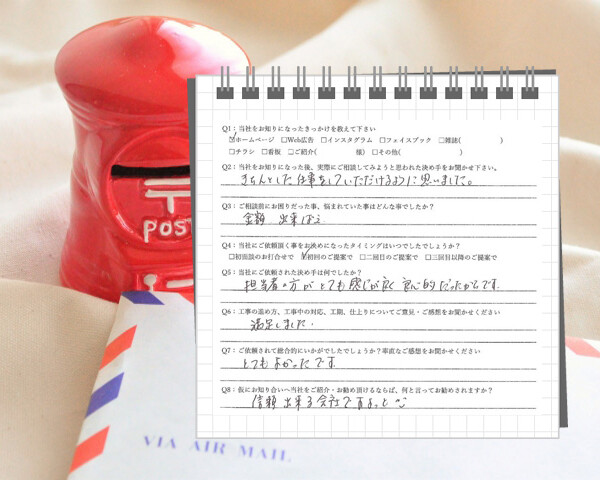 〒
POST
Q1：当社をお知りになったきっかけを教えて下さい
☑ホームページ □Web広告 □インスタグラム □フェイスブック □雑誌( )
□チラシ □看板 □ご紹介( 様) □その他( )
Q2：当社をお知りになった後、実際にご相談してみようと思われた決め手をお聞かせ下さい。
きちんとした仕事をしていただけるように思いました。
Q3：ご相談前にお困りだった事、悩まれていた事はどんな事でしたか？
金額 出来ばえ
Q4：当社にご依頼頂く事をお決めになったタイミングはいつでしたでしょうか？
□初該談のお打合せで ☑初回のご提案で □二回目のご提案で □三回目以降のご提案で
Q5：当社にご依頼された決め手は何でしたか？
担当者の方がとても感じが良く良心的だったからです。
Q6：工事の進め方、工事中の対応、工期、仕上りについてご意見・ご感想をお聞かせください
満足しました。
Q7：ご依頼されて総合的にいかがでしたでしょうか？率直なご感想をお聞かせください
とてもよかったです。
Q8：仮にお知り合いへ当社をご紹介・お勧め頂けるならば、何と言ってお勧めされますか？
信頼出来る会社ですよっと
VIA AIR MAIL